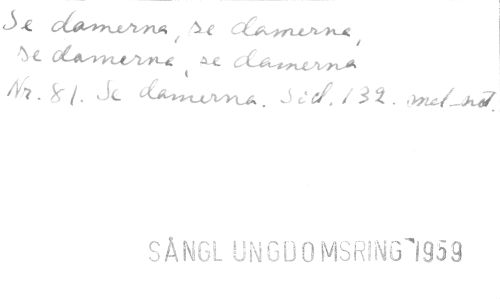 Se damerna, se damerna,
se damerna, se damerna
Nr. 81. Se damerna. Sid. 132. mel-not.
SÅNGL UNGDOMSRING 1959